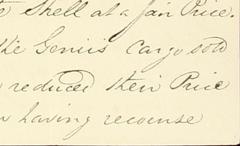 Shell at a fair Price.
the Genius Cargo sold
reduced their Price
having recourse